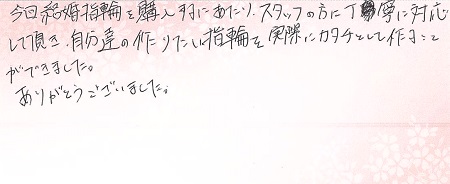 今回結婚指輪を購入するにあたり、スタッフの方に丁寧に対応
して頂き、自分達の作りたい指輪を実際にカタチとして作ること
ができました。
ありがとうございました。